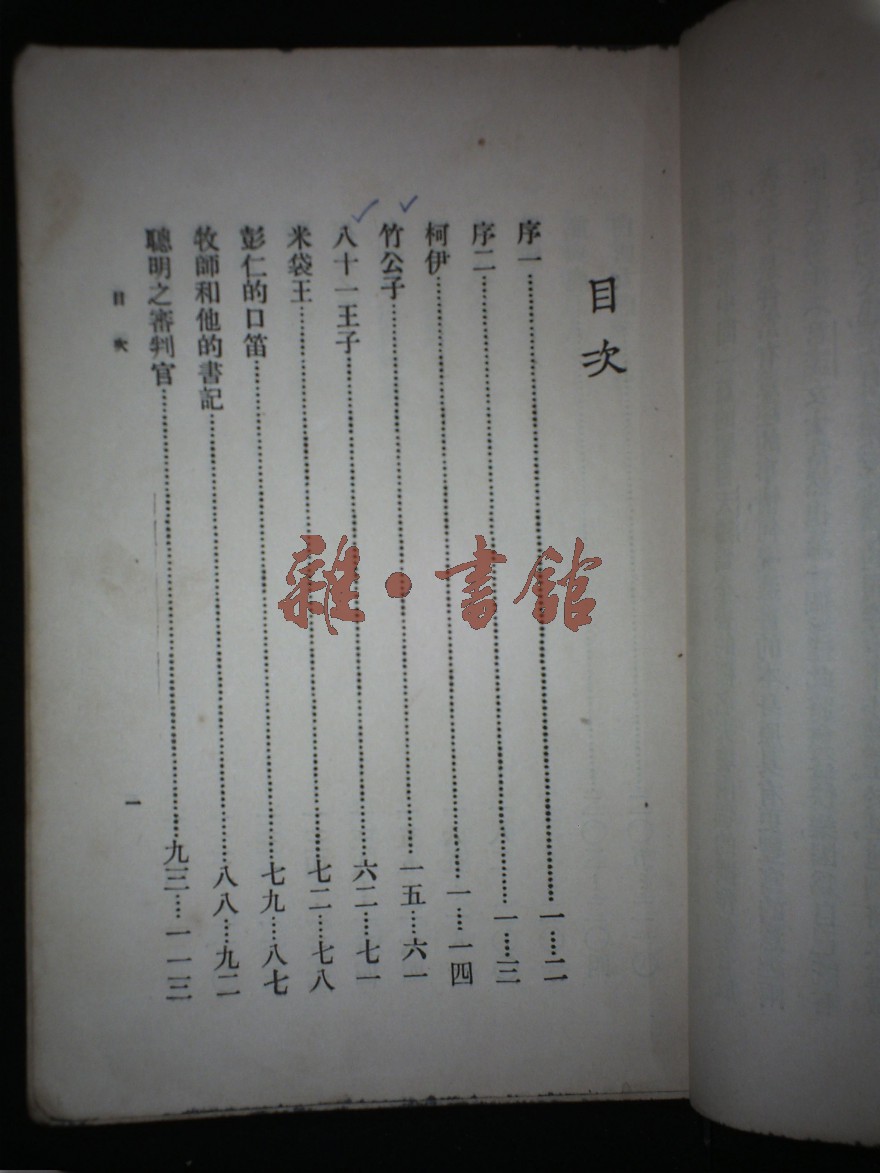 目次
序一……一……二
序二……一……三
柯伊……一……一四
竹公子……一五……六一
八十一王子……六二……七一
米袋王……七二……七八
彭仁的口笛……七九……八七
牧師和他的書記……八八……九二
聰明之審判官……九三……一一三
目次
一
雜·書館